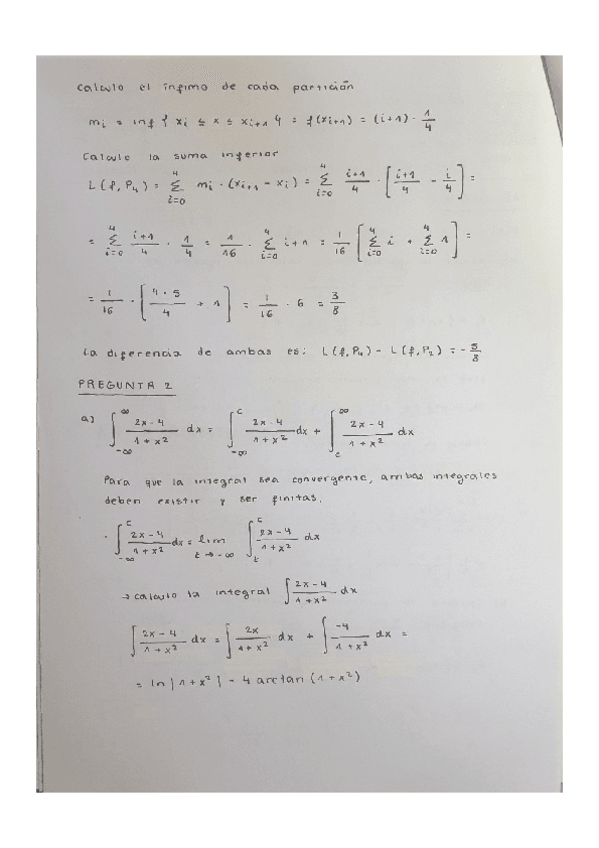 Calculo el ínfimo de cada partición
mᵢ = inf { xᵢ ≤ x ≤ xᵢ₊₁ } = f(xᵢ₊₁) = (i+1) · 1/4
Calculo la suma inferior
L(f, P₄) = ∑_{i=0}^{4} mᵢ · (xᵢ₊₁ - xᵢ) = ∑_{i=0}^{4} (i+1)/4 · [(i+1)/4 - i/4] =
= ∑_{i=0}^{4} (i+1)/4 · 1/4 = 1/16 · ∑_{i=0}^{4} i+1 = 1/16 [∑_{i=0}^{4} i + ∑_{i=0}^{4} 1] =
= 1/16 · [(4·5)/4 + 1] = 1/16 · 6 = 3/8
La diferencia de ambas es: L(f, P₄) - L(f, P₂) = -5/8
PREGUNTA 2
a) ∫_{-∞}^{∞} (2x-4)/(1+x²) dx = ∫_{-∞}^{c} (2x-4)/(1+x²) dx + ∫_{c}^{∞} (2x-4)/(1+x²) dx
Para que la integral sea convergente, ambas integrales
deben existir y ser finitas.
· ∫_{-∞}^{c} (2x-4)/(1+x²) dx = lim_{t→-∞} ∫_{t}^{c} (2x-4)/(1+x²) dx
→ calculo la integral ∫ (2x-4)/(1+x²) dx
∫ (2x-4)/(1+x²) dx = ∫ 2x/(1+x²) dx + ∫ -4/(1+x²) dx =
= ln|1+x²| - 4 arctan (1+x²)